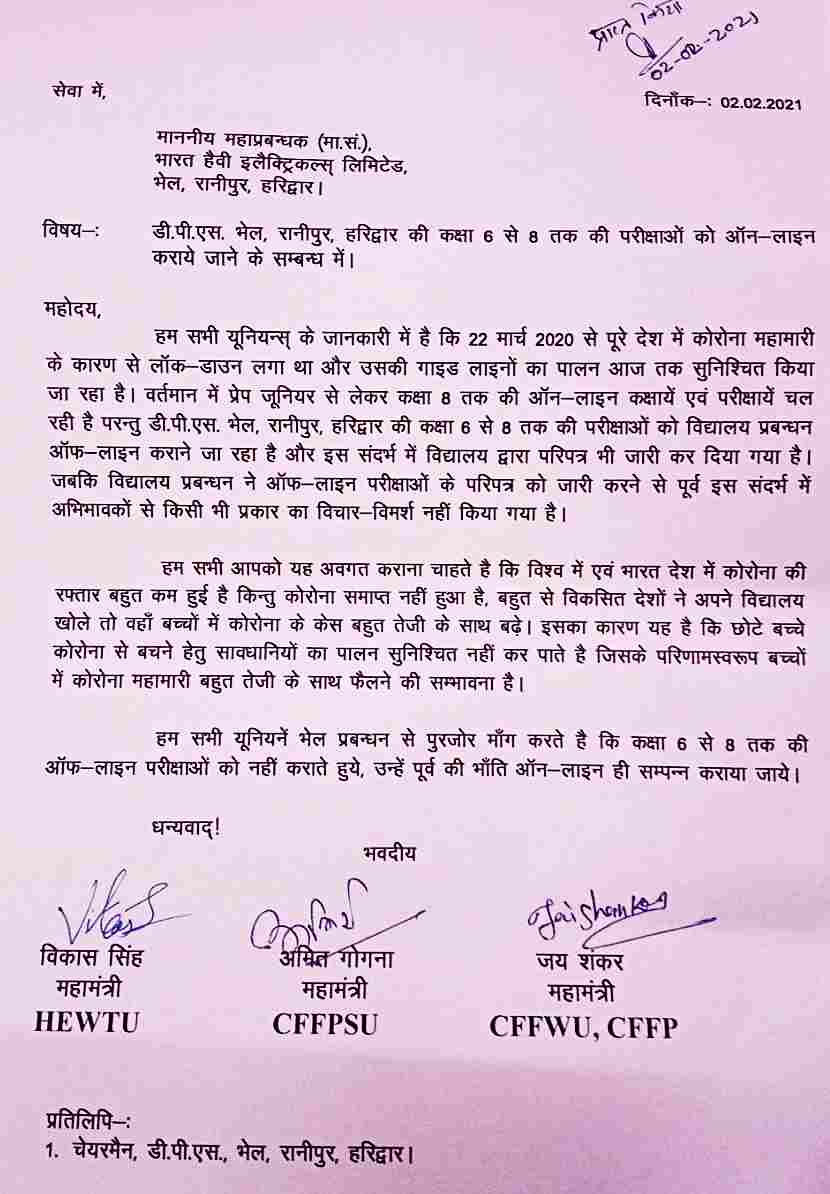 प्राप्त किया
02-02-2021
सेवा में,
दिनाँक–: 02.02.2021
माननीय महाप्रबन्धक (मा.सं.),
भारत हैवी इलैक्ट्रिकल्स् लिमिटेड,
भेल, रानीपुर, हरिद्वार।
विषय–: डी.पी.एस. भेल, रानीपुर, हरिद्वार की कक्षा 6 से 8 तक की परीक्षाओं को ऑन–लाइन
कराये जाने के सम्बन्ध में।
महोदय,
हम सभी यूनियन्स् के जानकारी में है कि 22 मार्च 2020 से पूरे देश में कोरोना महामारी
के कारण से लॉक–डाउन लगा था और उसकी गाइड लाइनों का पालन आज तक सुनिश्चित किया
जा रहा है। वर्तमान में प्रेप जूनियर से लेकर कक्षा 8 तक की ऑन–लाइन कक्षायें एवं परीक्षायें चल
रही है परन्तु डी.पी.एस. भेल, रानीपुर, हरिद्वार की कक्षा 6 से 8 तक की परीक्षाओं को विद्यालय प्रबन्धन
ऑफ–लाइन कराने जा रहा है और इस संदर्भ में विद्यालय द्वारा परिपत्र भी जारी कर दिया गया है।
जबकि विद्यालय प्रबन्धन ने ऑफ–लाइन परीक्षाओं के परिपत्र को जारी करने से पूर्व इस संदर्भ में
अभिभावकों से किसी भी प्रकार का विचार–विमर्श नहीं किया गया है।
हम सभी आपको यह अवगत कराना चाहते है कि विश्व में एवं भारत देश में कोरोना की
रफ्तार बहुत कम हुई है किन्तु कोरोना समाप्त नहीं हुआ है, बहुत से विकसित देशों ने अपने विद्यालय
खोले तो वहाँ बच्चों में कोरोना के केस बहुत तेजी के साथ बढ़े। इसका कारण यह है कि छोटे बच्चे
कोरोना से बचने हेतु सावधानियों का पालन सुनिश्चित नहीं कर पाते है जिसके परिणामस्वरूप बच्चों
में कोरोना महामारी बहुत तेजी के साथ फैलने की सम्भावना है।
हम सभी यूनियनें भेल प्रबन्धन से पुरजोर माँग करते है कि कक्षा 6 से 8 तक की
ऑफ–लाइन परीक्षाओं को नहीं कराते हुये, उन्हें पूर्व की भाँति ऑन–लाइन ही सम्पन्न कराया जाये।
धन्यवाद्!
भवदीय
Vikas अमित Jai Shankar
विकास सिंह अमित गोगना जय शंकर
महामंत्री महामंत्री महामंत्री
HEWTU CFFPSU CFFWU, CFFP
प्रतिलिपि–:
1. चेयरमैन, डी.पी.एस., भेल, रानीपुर, हरिद्वार।